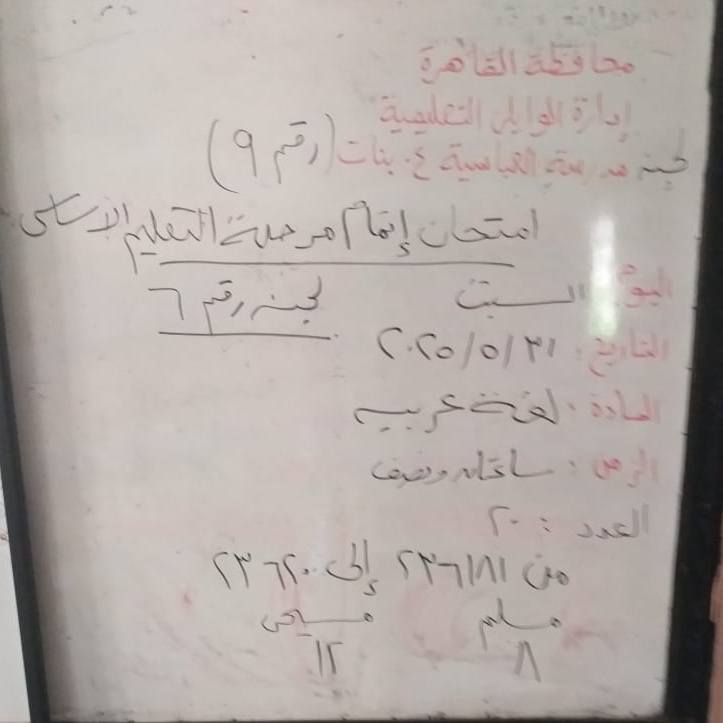 محافظة القاهرة
إدارة الوايلى التعليمية
لجنة مدرسة العباسية ع. بنات (رقم ٩)
امتحان إتمام مرحلة التعليم الاساسى
اليوم: السبت لجنة رقم ٦
التاريخ: ٣١/٥/٢٠٢٥
المادة: لغة عربيه
الزمن: ساعتان ونصف
العدد: ٢٠
من ٢٣٦١٨١ إلى ٢٣٦٢٠٠
مسلم مسيحى
٨ ١٢